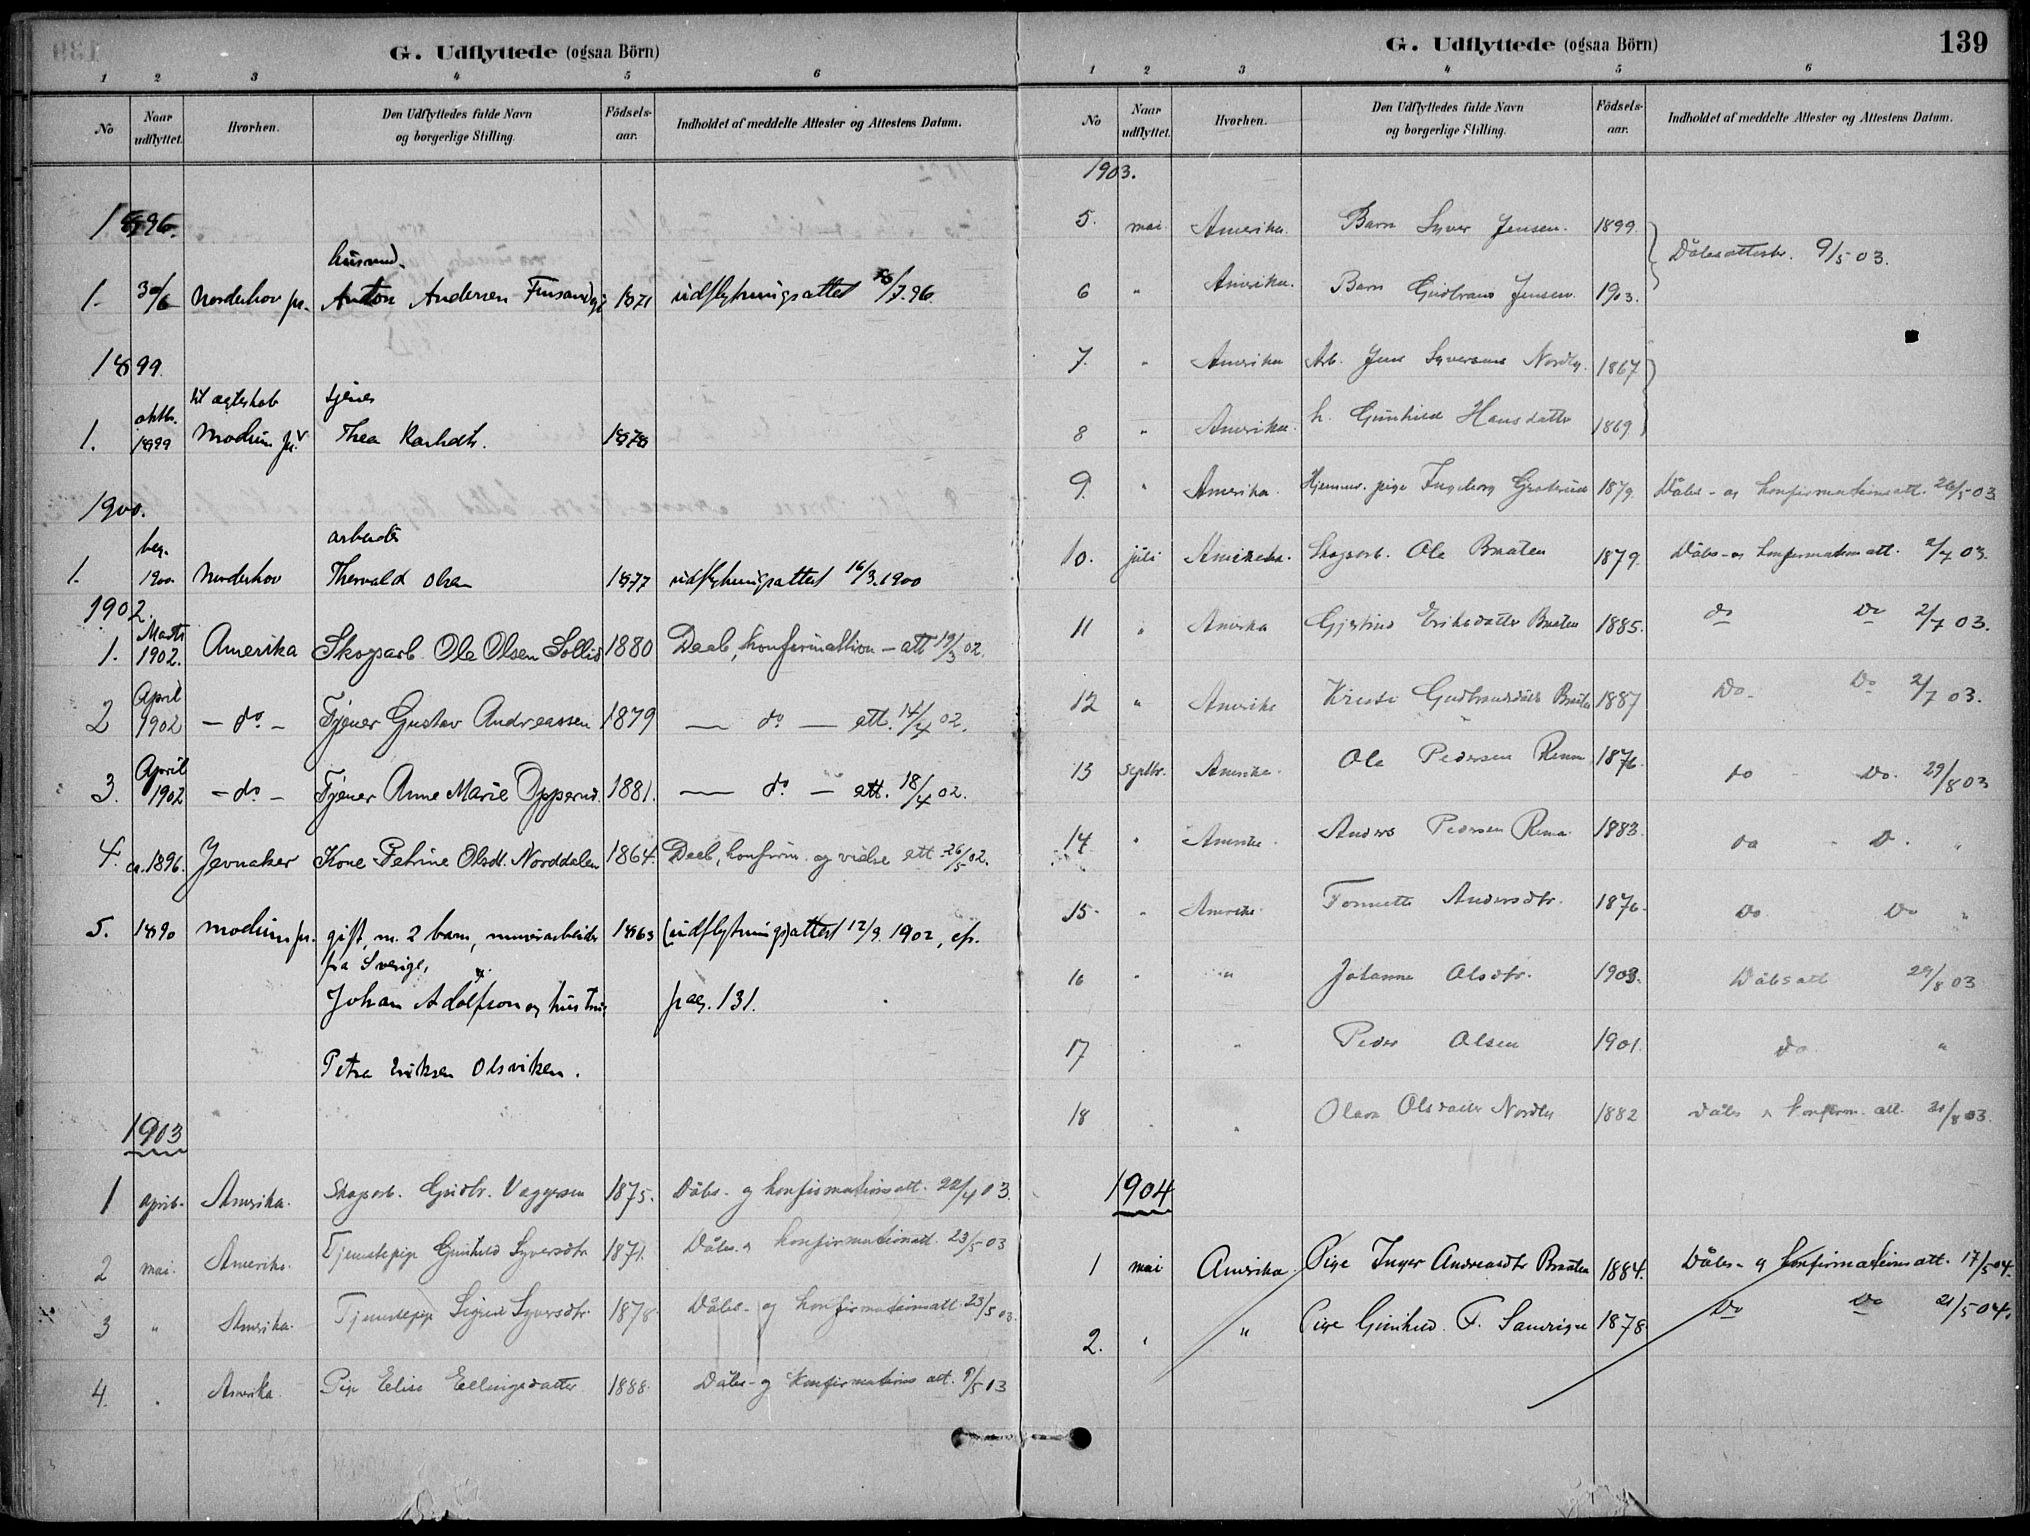 G. Udflyttede (ogsaa Börn)
1 2 3 4 5 6
No Naar udflyttet. Hvorhen. Den Udflyttedes fulde Navn og borgerlige Stilling. Födsels-aar. Indholdet af meddelte Attester og Attestens Datum.
1896.
husmd.
1. 30/6 Norderhov pr. Anton Andersen 1871 udflytningsattest /7.96.
1899
til ægteskab tjener
1. oktb. 1899 Modum pr. Thea Karlsdtr. 1878
1900.
arbeider
1. beg. 1900 Norderhov Thorvald Olsen 1877 udflytningsattest 16/3.1900
1902.
1. Marts 1902. Amerika Skogsarb. Ole Olsen Sollid 1880 Daab, Konfirmation - att 19/3 02.
2 April 1902 - do - Tjener Gustav Andreassen 1879 — do — att. 14/4 02.
3. April 1902 - do - Tjener Anne Marie Opperud. 1881. — do — att. 18/4 02.
4. ca. 1896. Jevnaker Kone Petrine Olsdt. Norddalen 1864. Daab, konfirm. og vielse att 26/5 02.
5. 1890 Modum pr. gift, m. 2 barn, murerarbeider 1863 (udflytnings)attest 12/9. 1902, cfr.
fra Sverige,
Johan Adolfson og hustru pag. 131.
Petra Eriksen Olsviken.
1903
1 april. Amerika. Skogsarb. Gudbr. 1875. Dåbs- og konfirmationsatt. 22/4 03.
2 mai. Amerika. Tjenestepige Gunhild Syversdtr 1871. Dåbs- og konfirmationatt. 23/5 03
3 " Amerika. Tjenestepige Sigrid Syversdtr. 1878 Dåbs- og konfirmationsatt 23/5 03.
4. " Amerika. Pige Elise Ellingsdatter 1888. Dåbs- og konfirmations att. 9/5 03
G. Udflyttede (ogsaa Börn) 139
1 2 3 4 5 6
No Naar udflyttet. Hvorhen. Den Udflyttedes fulde Navn og borgerlige Stilling. Födsels-aar. Indholdet af meddelte Attester og Attestens Datum.
1903.
5. mai Amerika. Barn Syver Jensen. 1899. Dåbsattester. 9/5 03.
6 " Amerika. Barn Gudbrand Jensen. 1903.
7. " Amerika Arb. Jens Syversen Nordby. 1867
8 " Amerika. h. Gunhild Hansdatter 1869.
9. " Amerika. Hjemmev. pige Ingeborg 1879. Dåbs- og konfirmationsatt. 26/5 03.
10. juli Amerika. Skogsarb. Ole Braaten 1879. Dåbs- og konfirmation att. 2/7 03.
11 " Amerika Gjertrud Eriksdatter Braaten 1885. do do 2/7 03.
12 " Amerika Kristi Gudbrandsdatt. Braaten 1887 Do. Do 2/7 03.
13 Septbr. Amerika. Ole Pedersen 1876. do - Do. 29/8 03
14 " Amerika. Anders Pedersen 1883. do - D. "
15. " Amerika. Tonnette Andersdtr. 1876. Do Do "
16 " " Johanne Olsdtr. 1903. Dåbsatt 29/8 03
17 . " Peder Olsen 1901. do "
18 . " Olava Olsdatter Nordby 1882 Dåbs og konfirm. att. 31/8 03.
1904
1 mai Amerika. Pige Inger Andreasdtr Braaten 1884. Dåbs- og konfirmationsatt. 17/5 04.
2. " " Pige Gunhild F. 1878. Do Do 21/5 04.